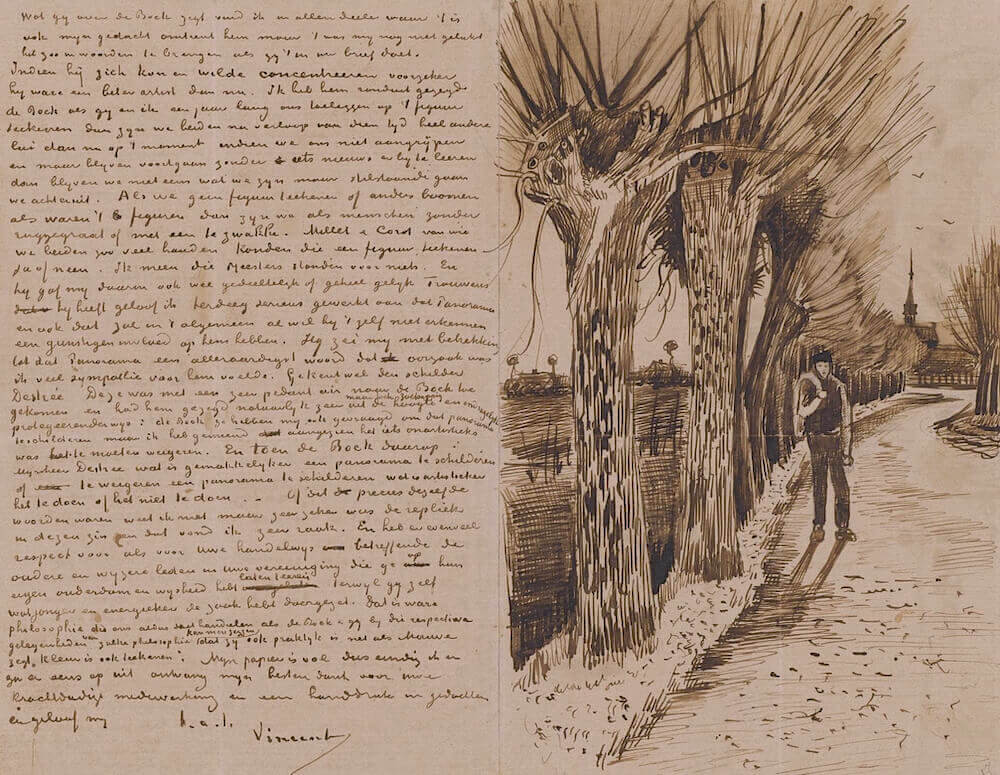 Wat gy over de Bock zegt vind ik in allen deele waar 't is
ook myn gedacht omtrent hem maar 't was my nog niet gelukt
het zoo in woorden te brengen als gy 't in uw brief doet.
Indien hij zich kon en wilde concentreeren voorzeker
hy ware een beter artist dan nu. Ik heb hem ronduit gezegd
de Bock als gy en ik een jaar lang ons toeleggen op 't figuur
teekenen dan zyn we beiden na verloop van dien tyd heel andere
lui dan nu op 't moment indien we ons niet aangrijpen
en maar blyven voortgaan zonder iets nieuws er by te leeren
dan blyven we niet eens wat we zyn maar stilstaande gaan
we achteruit. Als we geen figuur teekenen of anders boomen
als waren 't figuren dan zyn we als menschen zonder
ruggegraat of met een te zwakke. Millet & Corot van wie
we beiden zoo veel houden konden die een figuur teekenen
ja of neen. Ik meen die Meesters stonden voor niets. En
hy gaf my daarin ook wee gedeeltelijk of geheel gelyk Trouwens
hy heeft geloof ik terdeeg serieus gewerkt aan dat Panorama
en ook dat zal in 't algemeen al wil hy 't zelf niet erkennen
een gunstigen invloed op hem hebben. Hy zei my met betrekking
tot dat Panorama een alleraardigst woord dat oorzaak was
ik veel sympathie voor hem voelde. Ge kent wel den schilder
Destree Deze was met een zeer pedant air naar de Bock toe
gekomen en had hem gezegd natuurlyk zeer uit de hoogte en
protegeerenderwys: de Bock ze hebben my ook gevraagd om dat panorama
te schilderen maar ik heb gemeend aangezien het iets onartistieks
was het te moeten weigeren. En toen de Bock daarop
Mynheer Destree wat is gemakkelyker een panorama te schilderen
of te weigeren een panorama te schilderen wat is artistieker
het te doen of het niet te doen. – Of dit precies dezelfde
woorden waren weet ik niet maar zeer zeker was de repliek
in dezen zin en dat vond ik zeer raak. En heb er evenveel
respect voor als voor uwe handelwys betreffende de
oudere en wyzere leden in uwe vereeniging die ge op hun
eigen ouderdom en wysheid hebt laten teeren terwyl gy zelf
wat jonger en energieker de zaak hebt doorgezet. Dat is ware
philosophie die ons doet handelen als de Bock & gy by die respectieve
gelegenheden van zulke philosophie kan men zeggen dat zy ook praktyk is net als Mauve
zegt "kleur is ook teekenen". Myn papier is vol dus eindig ik en
ga er eens op uit ontvang myn besten dank voor uwe
krachtdadige medewerking en een handdruk in gedachten
en geloof my t. à. t.
Vincent